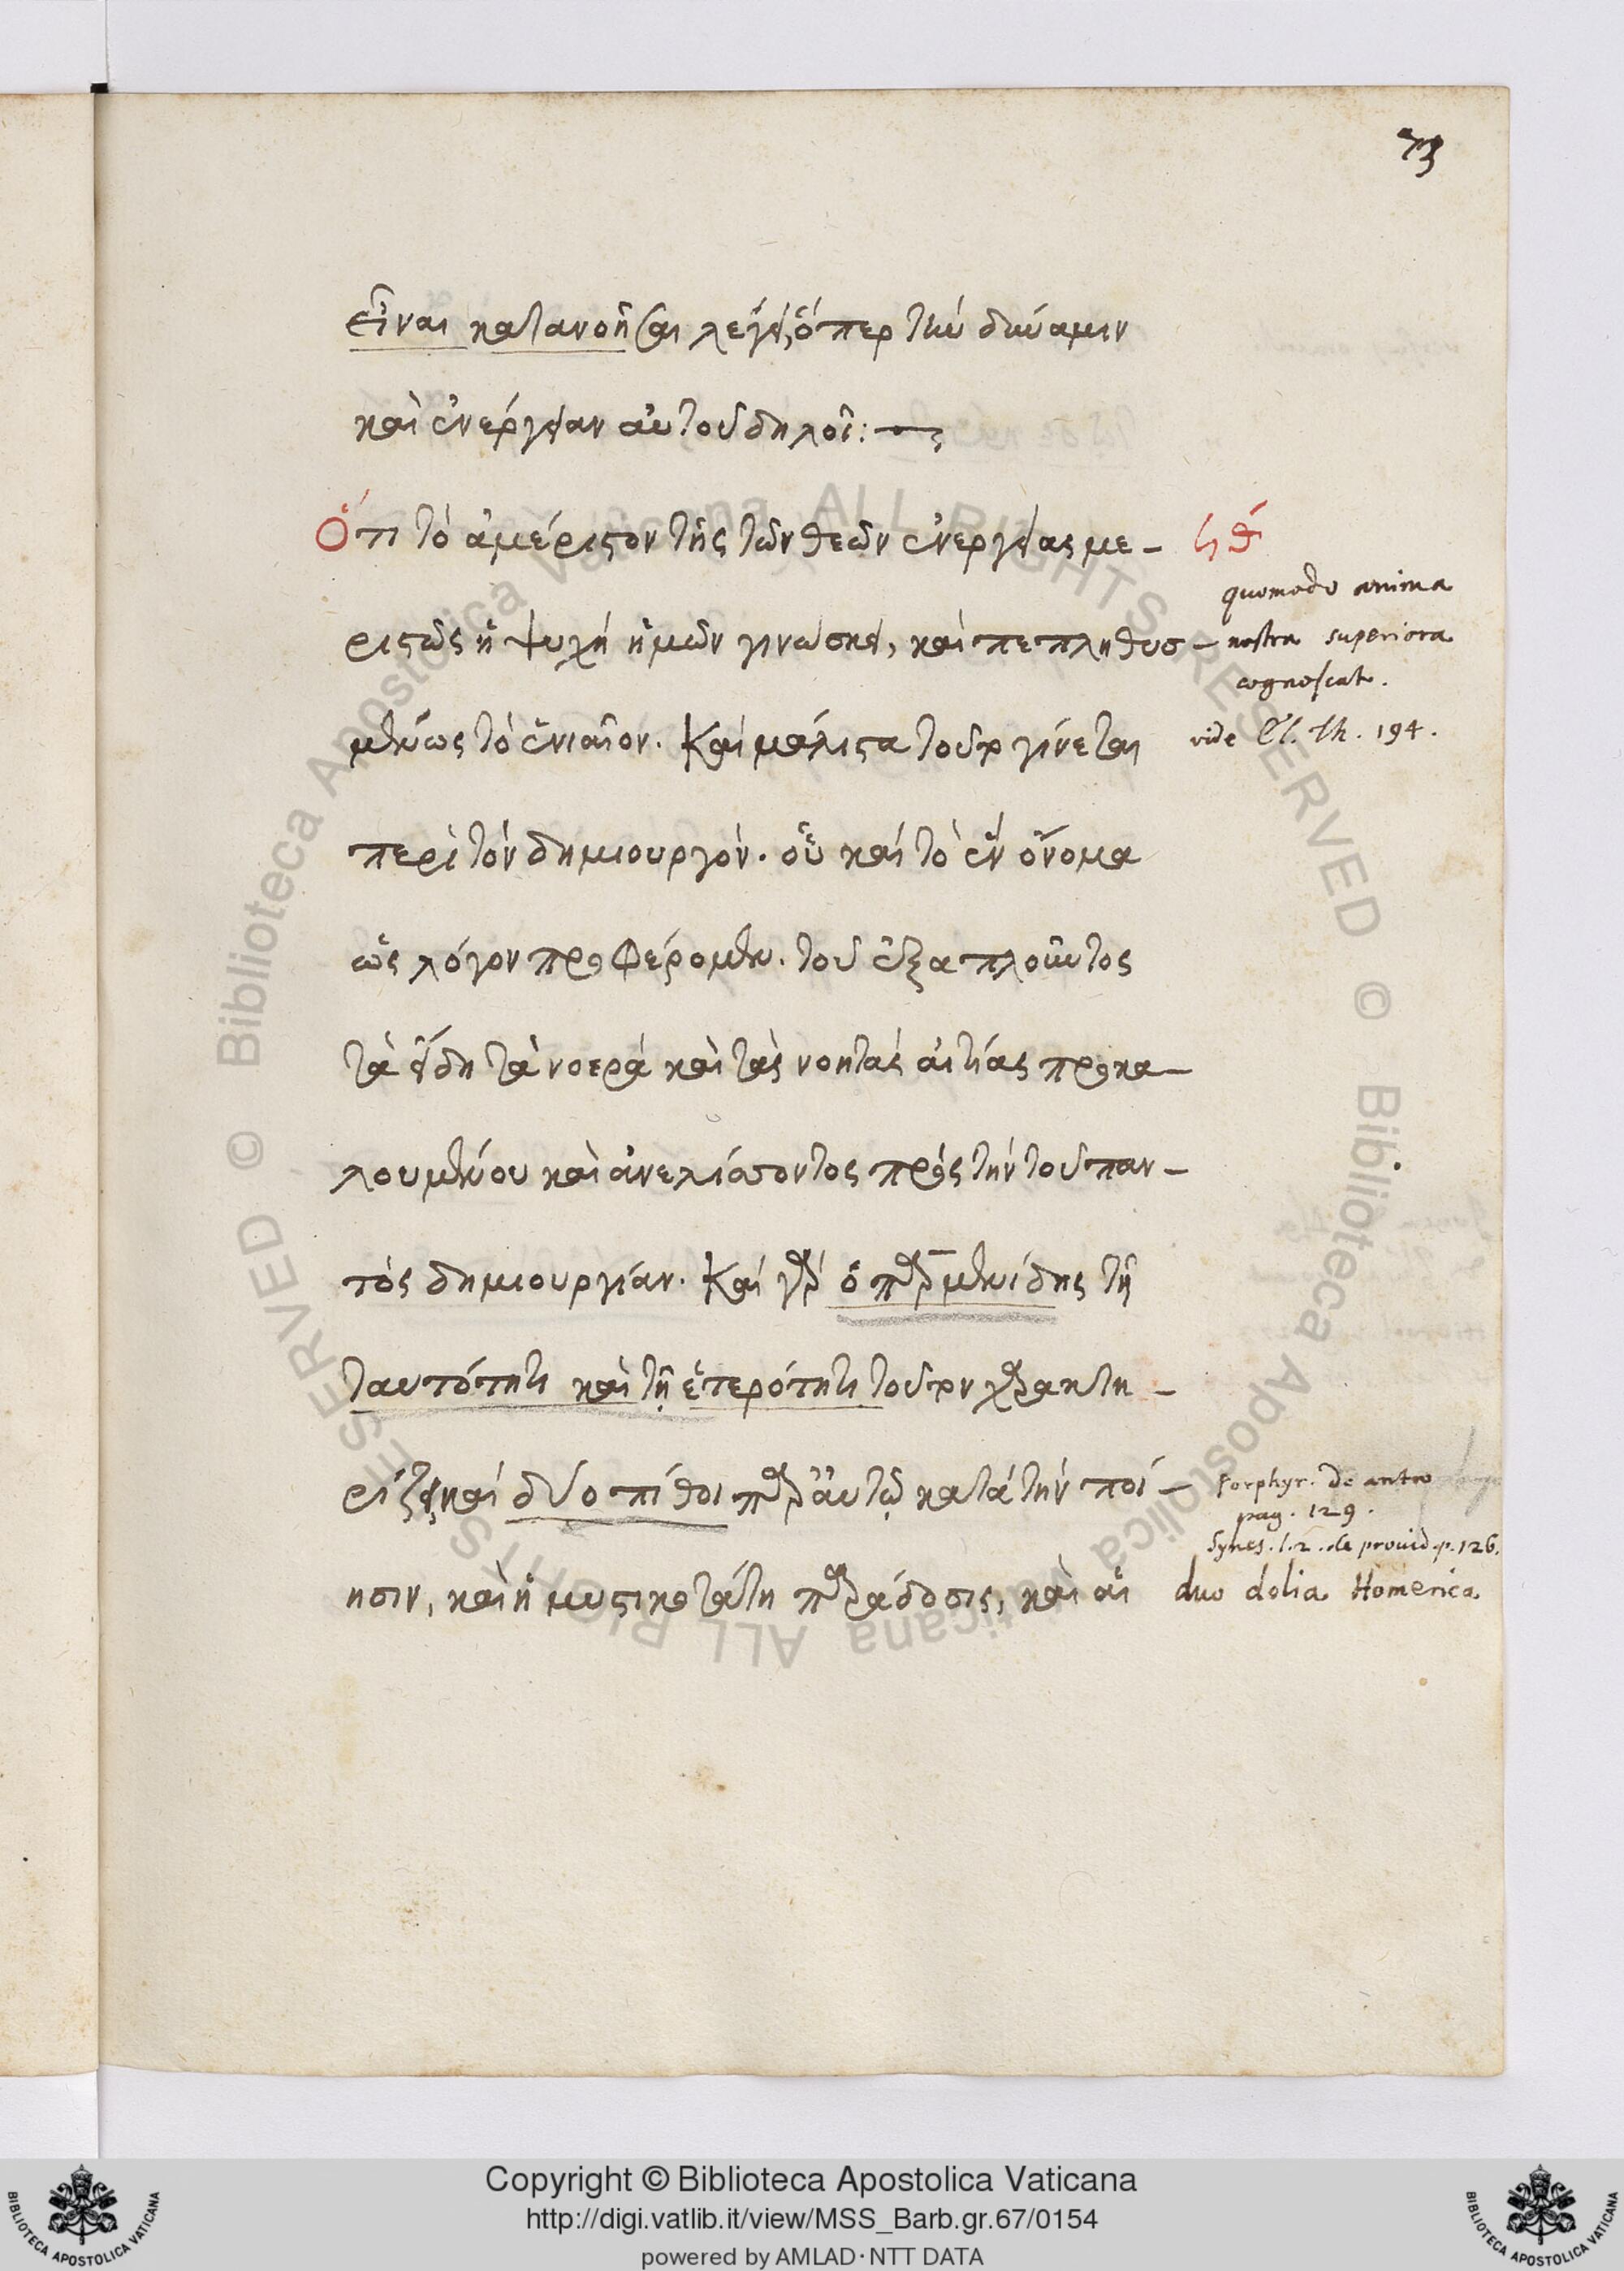 73
εἶναι κατανοῆσαι λέγει, ὅπερ τὴν δύναμιν
καὶ ἐνέργειαν αὐτοῦ δηλοῖ:
Ὅτι τὸ ἀμέριστον τῆς τῶν θεῶν ἐνεργείας με-
ριστῶς ἡ ψυχὴ ἡμῶν γινώσκει, καὶ πεπληθυσ-
μένως τὸ ἑνιαῖον. Καὶ μάλιστα τοῦτο γίνεται
περὶ τὸν δημιουργὸν. οὗ καὶ τὸ ἓν ὄνομα
ὡς λόγον προφέρομεν. τοῦ ἐξαπλοῦντος
τὰ εἴδη τὰ νοερὰ καὶ τὰς νοητὰς αἰτίας προκα-
λουμένου καὶ ἀνελίσσοντος πρὸς τὴν τοῦ παν-
τὸς δημιουργίαν. Καὶ γὰρ ὁ παρμενίδης τῇ
ταυτότητι καὶ τῇ ἑτερότητι τοῦτον χαρακτη-
ρίζει, καὶ δύο πίθοι παρ' αὐτῷ κατὰ τὴν ποί-
ησιν, καὶ ἡ μυστικωτάτη παράδοσις, καὶ αἱ
ϟθ
quomodo anima
nostra superiora
cognoscat.
vide Pl. Th. 194.
Porphyr. de antro
pag. 129.
Synes. l. 2. de provid. p. 126.
duo dolia Homerica
© Biblioteca Apostolica Vaticana ALL RIGHTS RESERVED © Biblioteca Apostolica Vaticana ALL RIGHTS RESERVED
Copyright © Biblioteca Apostolica Vaticana
http://digi.vatlib.it/view/MSS_Barb.gr.67/0154
powered by AMLAD·NTT DATA
BIBLIOTECA APOSTOLICA VATICANA
BIBLIOTECA APOSTOLICA VATICANA